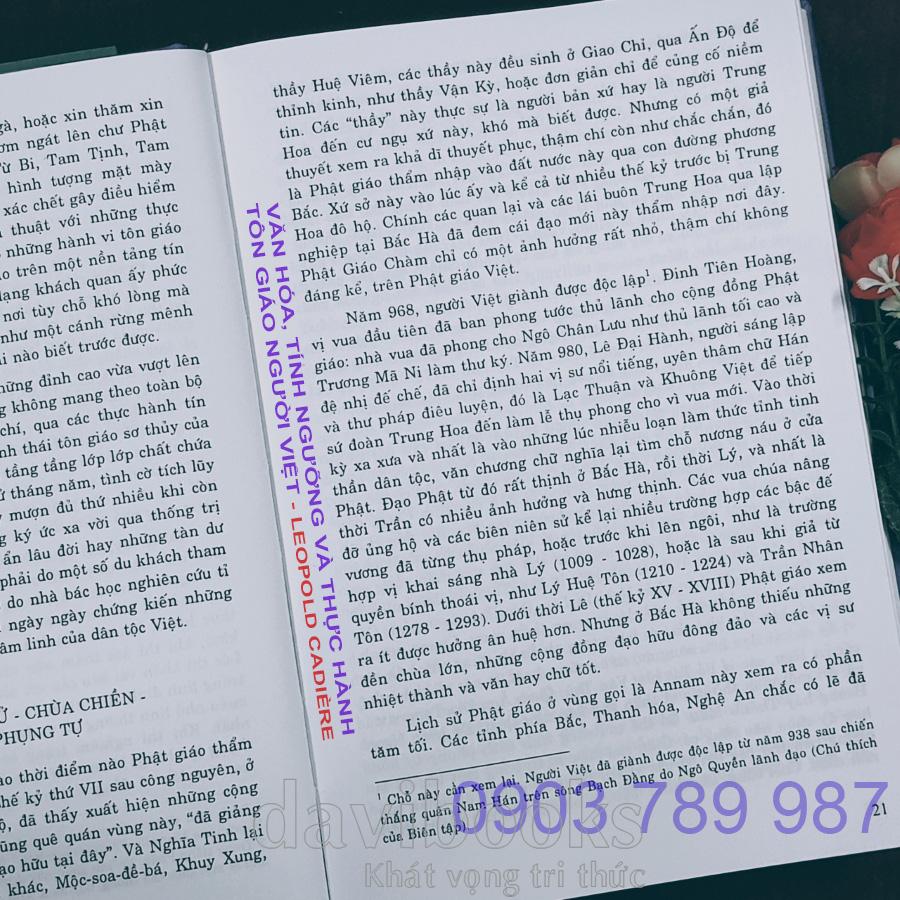 gà, hoặc xin thăm xin
ơm ngát lên chư Phật
Từ Bi, Tam Tịnh, Tam
hình tượng mặt mày
xác chết gây điều hiểm
thuật với những thực
những hành vi tôn giáo
trên một nền tảng tín
dạng khách quan ấy phức
nơi tùy chỗ khó lòng mà
như một cánh rừng mênh
nào biết trước được.
những đỉnh cao vừa vượt lên
không mang theo toàn bộ
chí, qua các thực hành tín
hình thái tôn giáo sơ thủy của
tầng tầng lớp lớp chất chứa
tháng năm, tình cờ tích lũy
mượn đủ thứ nhiêu khi còn
ký ức xa vời qua thống trị
ẩn lâu đời hay những tàn dư
phải do một số du khách tham
do nhà bác học nghiên cứu tỉ
ngày ngày chứng kiến những
tâm linh của dân tộc Việt.
- CHÙA CHIỀN -
PHỤNG TỰ
thời điểm nào Phật giáo thẩm
thế kỷ thứ VII sau công nguyên, ở
đã thấy xuất hiện những cộng
quê quán vùng này, “đã giảng
hữu tại đây”. Và Nghĩa Tinh lại
khác, Mộc-soa-đề-bá, Khuy Xung,
thầy Huệ Viêm, các thầy này đều sinh ở Giao Chỉ, qua Ấn Độ để
thỉnh kinh, như thầy Vận Kỳ, hoặc đơn giản chỉ để củng cố niềm
tin. Các “thầy” này thực sự là người bản xứ hay là người Trung
Hoa đến cư ngụ xứ này, khó mà biết được. Nhưng có một giả
thuyết xem ra khả dĩ thuyết phục, thậm chí còn như chắc chắn, đó
là Phật giáo thẩm nhập vào đất nước này qua con đường phương
Bắc. Xứ sở này vào lúc ấy và kể cả từ nhiều thế kỷ trước bị Trung
Hoa đô hộ. Chính các quan lại và các lái buôn Trung Hoa qua lập
nghiệp tại Bắc Hà đã đem cái đạo mới này thẩm nhập nơi đây.
Phật Giáo Chàm chỉ có một ảnh hưởng rất nhỏ, thậm chí không
đáng kể, trên Phật giáo Việt.
Năm 968, người Việt giành được độc lập¹. Đinh Tiên Hoàng,
vị vua đầu tiên đã ban phong tước thủ lãnh cho cộng đồng Phật
giáo: nhà vua đã phong cho Ngô Chân Lưu như thủ lãnh tối cao và
Trương Mã Ni làm thư ký. Năm 980, Lê Đại Hành, người sáng lập
đệ nhị đế chế, đã chỉ định hai vị sư nổi tiếng, uyên thâm chữ Hán
và thư pháp điêu luyện, đó là Lạc Thuận và Khuông Việt để tiếp
sứ đoàn Trung Hoa đến làm lễ thụ phong cho vì vua mới. Vào thời
kỳ xa xưa và nhất là vào những lúc nhiễu loạn làm thức tỉnh tinh
thần dân tộc, văn chương chữ nghĩa lại tìm chỗ nương náu ở cửa
Phật. Đạo Phật từ đó rất thịnh ở Bắc Hà, rồi thời Lý, và nhất là
thời Trần có nhiều ảnh hưởng và hưng thịnh. Các vua chúa nâng
đỡ ủng hộ và các biên niên sử kể lại nhiều trường hợp các bậc đế
vương đã từng thụ pháp, hoặc trước khi lên ngôi, như là trường
hợp vị khai sáng nhà Lý (1009 - 1028), hoặc là sau khi giả từ
quyền bính thoái vị, như Lý Huệ Tôn (1210 - 1224) và Trần Nhân
Tôn (1278 - 1293). Dưới thời Lê (thế kỷ XV - XVIII) Phật giáo xem
ra ít được hưởng ân huệ hơn. Nhưng ở Bắc Hà không thiếu những
đền chùa lớn, những cộng đồng đạo hữu đông đảo và các vị sư
nhiệt thành và văn hay chữ tốt.
Lịch sử Phật giáo ở vùng gọi là Annam này xem ra có phần
tăm tối. Các tỉnh phía Bắc, Thanh hóa, Nghệ An chắc có lẽ đã
¹ Chỗ này cần xem lại. Người Việt đã giành được độc lập từ năm 938 sau chiến
thắng quân Nam Hán trên sông Bạch Đằng do Ngô Quyền lãnh đạo (Chú thích
của Biên tập)
21
VĂN HÓA, TÍNH NGƯỠNG VÀ THỰC HÀNH
TÔN GIÁO NGƯỜI VIỆT - LEOPOLD CADIÈRE
0903 789 987
davibooks
Khát vọng tri thức